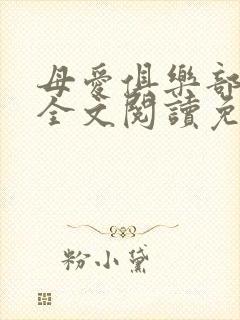 母爱俱樂部
全文閱讀免
粉小黛